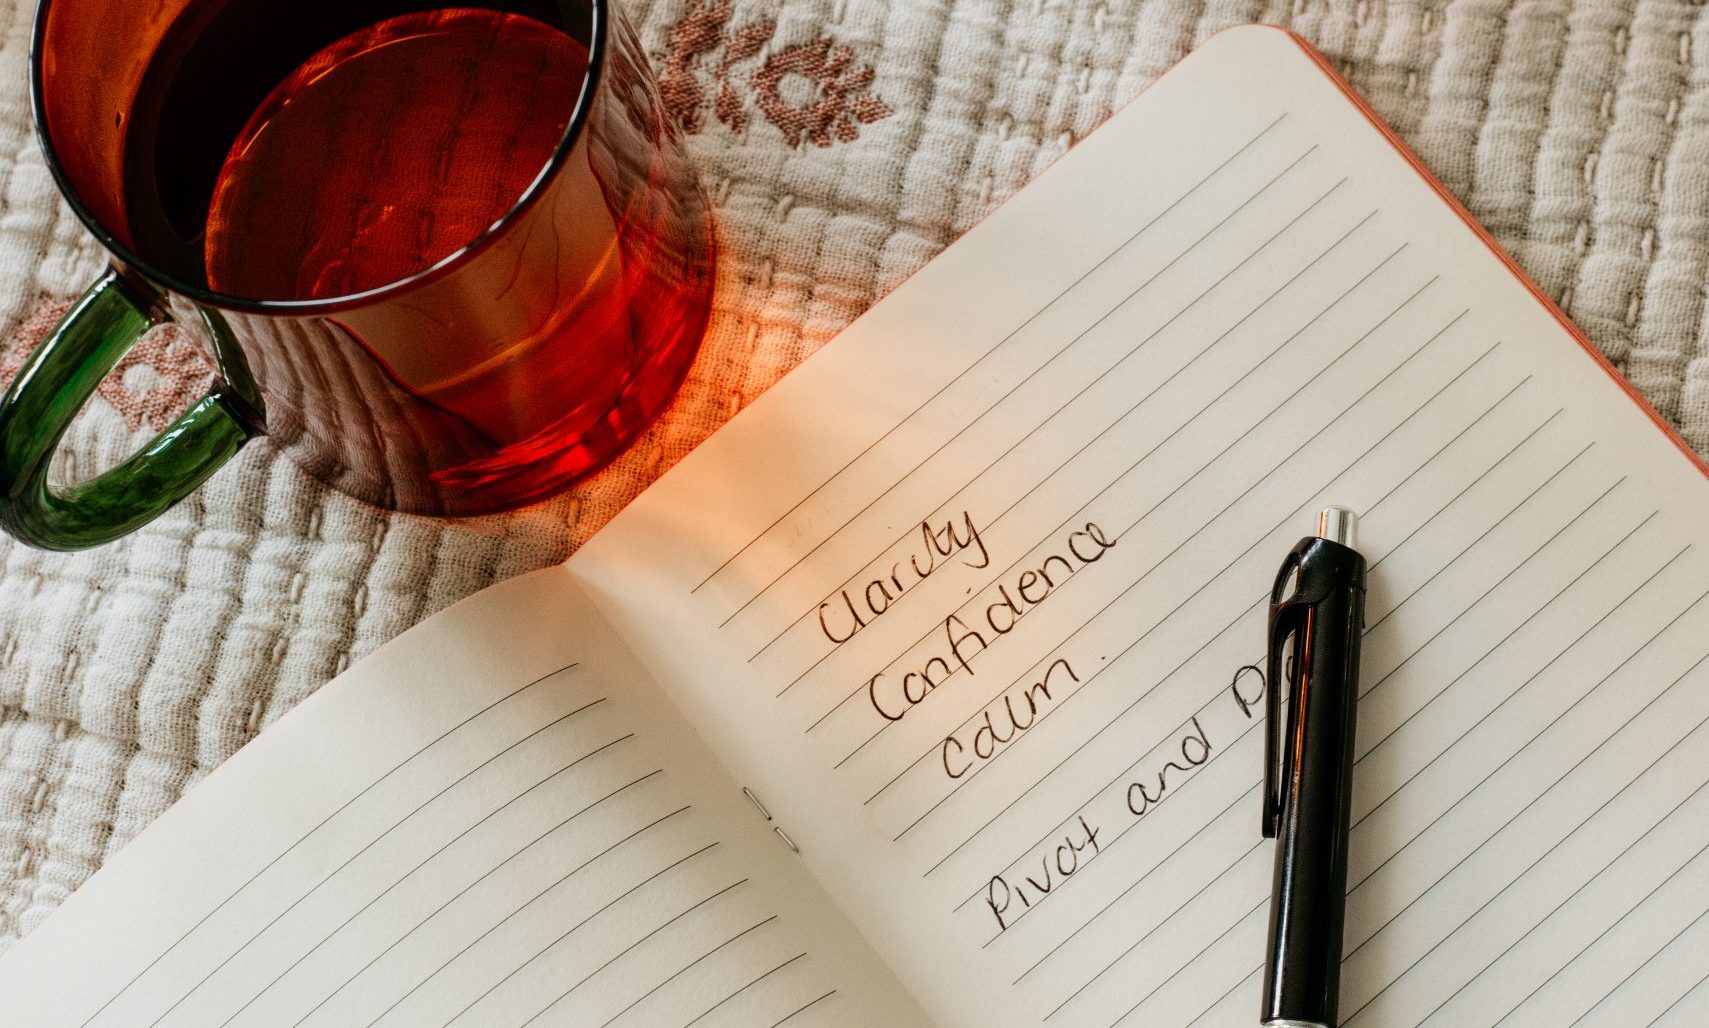 Clarity
Confidence
Calm.
Pivot and